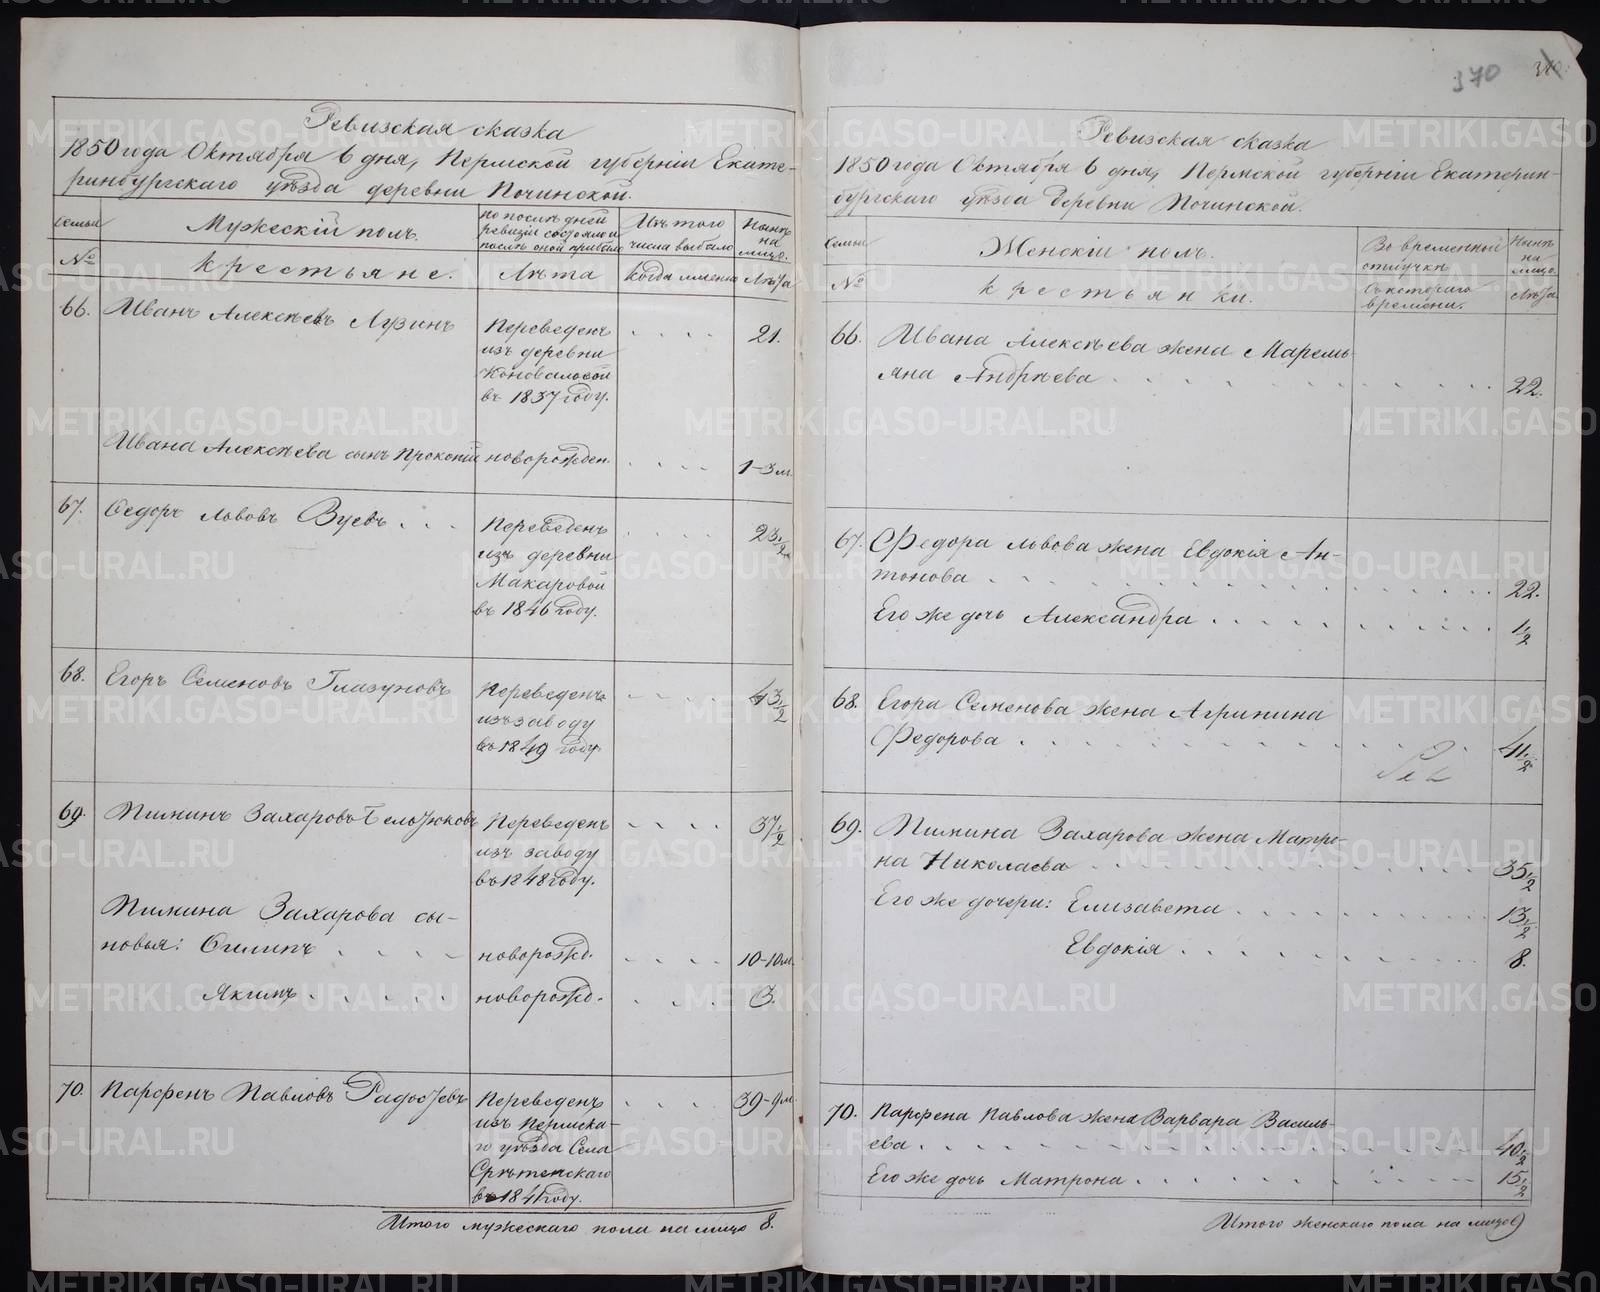 370
Ревизская сказка
1850 года Октября 6 дня, Пермской губерніи Екате-
ринбургскаго уѣзда деревни Починской.
Семьи
Мужескій полъ.
по послѣдней
ревизіи состояло и
послѣ оной прибыло
Изъ того
числа выбыло
Нынѣ
на
лицо.
№
крестьяне.
Лѣта
когда именно
Лѣта
66.
Иванъ Алексѣевъ Лузинъ
Переведенъ
изъ деревни
Коноваловой
въ 1837 году.
21.
Ивана Алексѣева сынъ Прокопій
новорожден.
1-3 м.
67.
Ѳедоръ Львовъ Зуевъ
Переведенъ
изъ деревни
Макаровой
въ 1846 году.
23 1/2
68.
Егоръ Семеновъ Глазуновъ
Переведенъ
изъ заводу
въ 1849 году
43 1/2
69.
Пиминъ Захаровъ Белоусковъ
Переведенъ
изъ заводу
въ 1848 году.
37 1/2
Пимина Захарова сы-
новья: Ѳилипъ
новорожд.
10-10 м.
Якимъ
новорожд.
3.
70.
Парфенъ Павловъ
Переведенъ
изъ Пермска-
го уѣзда Села
Срѣтенскаго
въ 1841 году.
39-9 м.
Итого мужескаго пола на лицо 8.
Ревизская сказка
1850 года Октября 6 дня, Пермской губерніи Екатерин-
бургскаго уѣзда Деревни Починской.
Семьи
Женскій полъ.
Во временной
отлучкѣ
Нынѣ
на
лицо.
№
крестьянки.
Съ котораго
времени.
Лѣта
66.
Ивана Алексѣева жена Маремь-
яна Андрѣева
22.
67.
Федора Львова жена Евдокія Ан-
тонова
22.
Его же дочь Александра
1 1/2
68.
Егора Семенова жена Агрипина
Федорова
41 1/2
69.
Пимина Захарова жена Матро-
на Николаева
35 1/2
Его же дочери: Елизавета
13 1/2
Евдокія
8.
70.
Парфена Павлова жена Варвара Василь-
ева
40 1/2
Его же дочь Матрона
15 1/2
Итого женскаго пола на лицо 9
METRIKI.GASO-URAL.RU